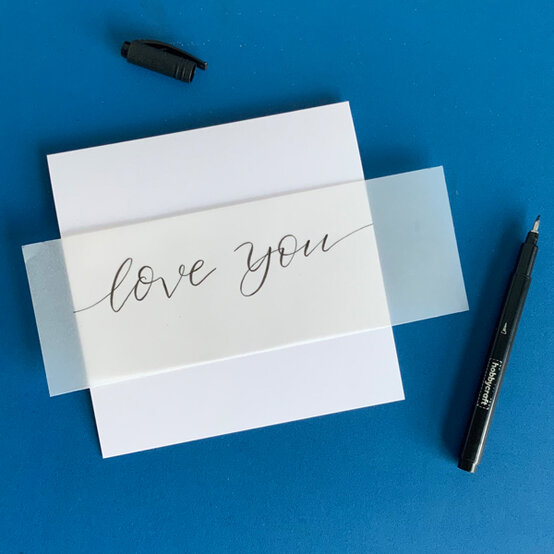 love you
hobbycraft